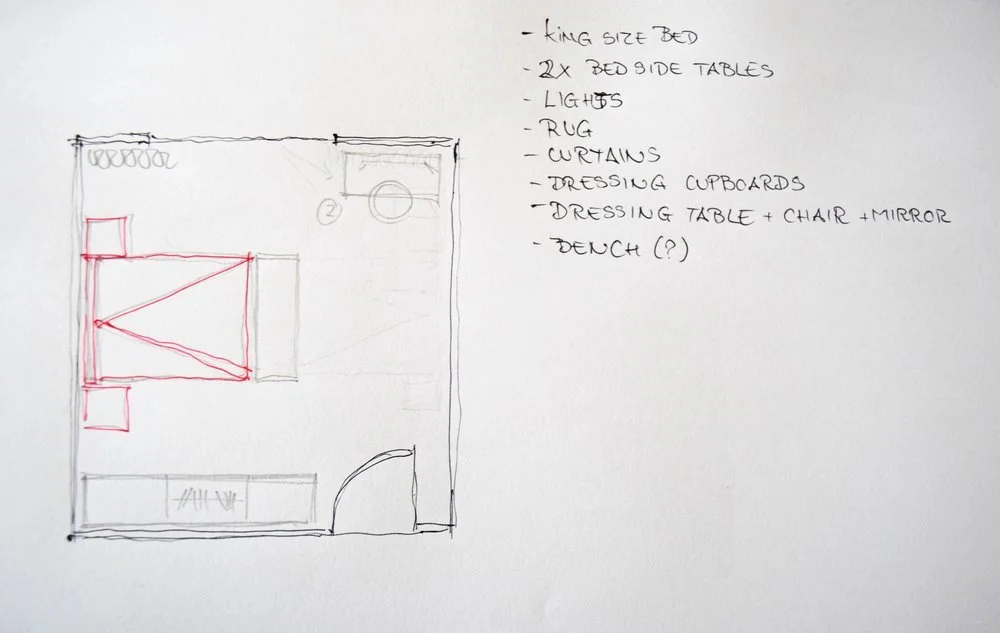 - KING SIZE BED
- 2X BEDSIDE TABLES
- LIGHTS
- RUG
- CURTAINS
- DRESSING CUPBOARDS
- DRESSING TABLE + CHAIR + MIRROR
- BENCH (?)
2